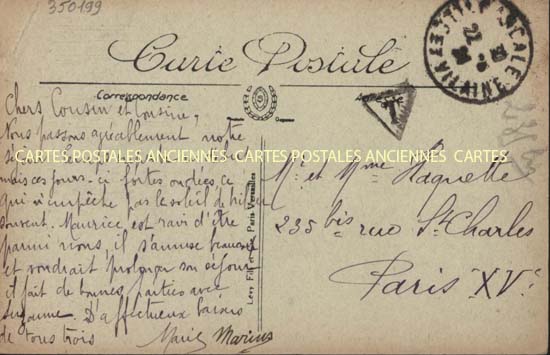 350199
Carte Postale
Correspondance
Chers Cousin et Cousine,
Nous passons agréablement notre
CARTES POSTALES ANCIENNES CARTES POSTALES ANCIENNES CARTES
mais ces jours-ci fortes ondées, ce
qui n'empêche pas le soleil de briller
souvent. Maurice est ravi d'être
parmi nous, il s'amuse beaucoup
et voudrait prolonger son séjour
il fait de bonnes parties avec
Suzanne. D'affectueux baisers
de tous trois
Marie Marius
Levy Fils et Cie, Paris
Mr et Mme Haquette
235 bis rue St Charles
Paris XVe
T
22
VILAINE